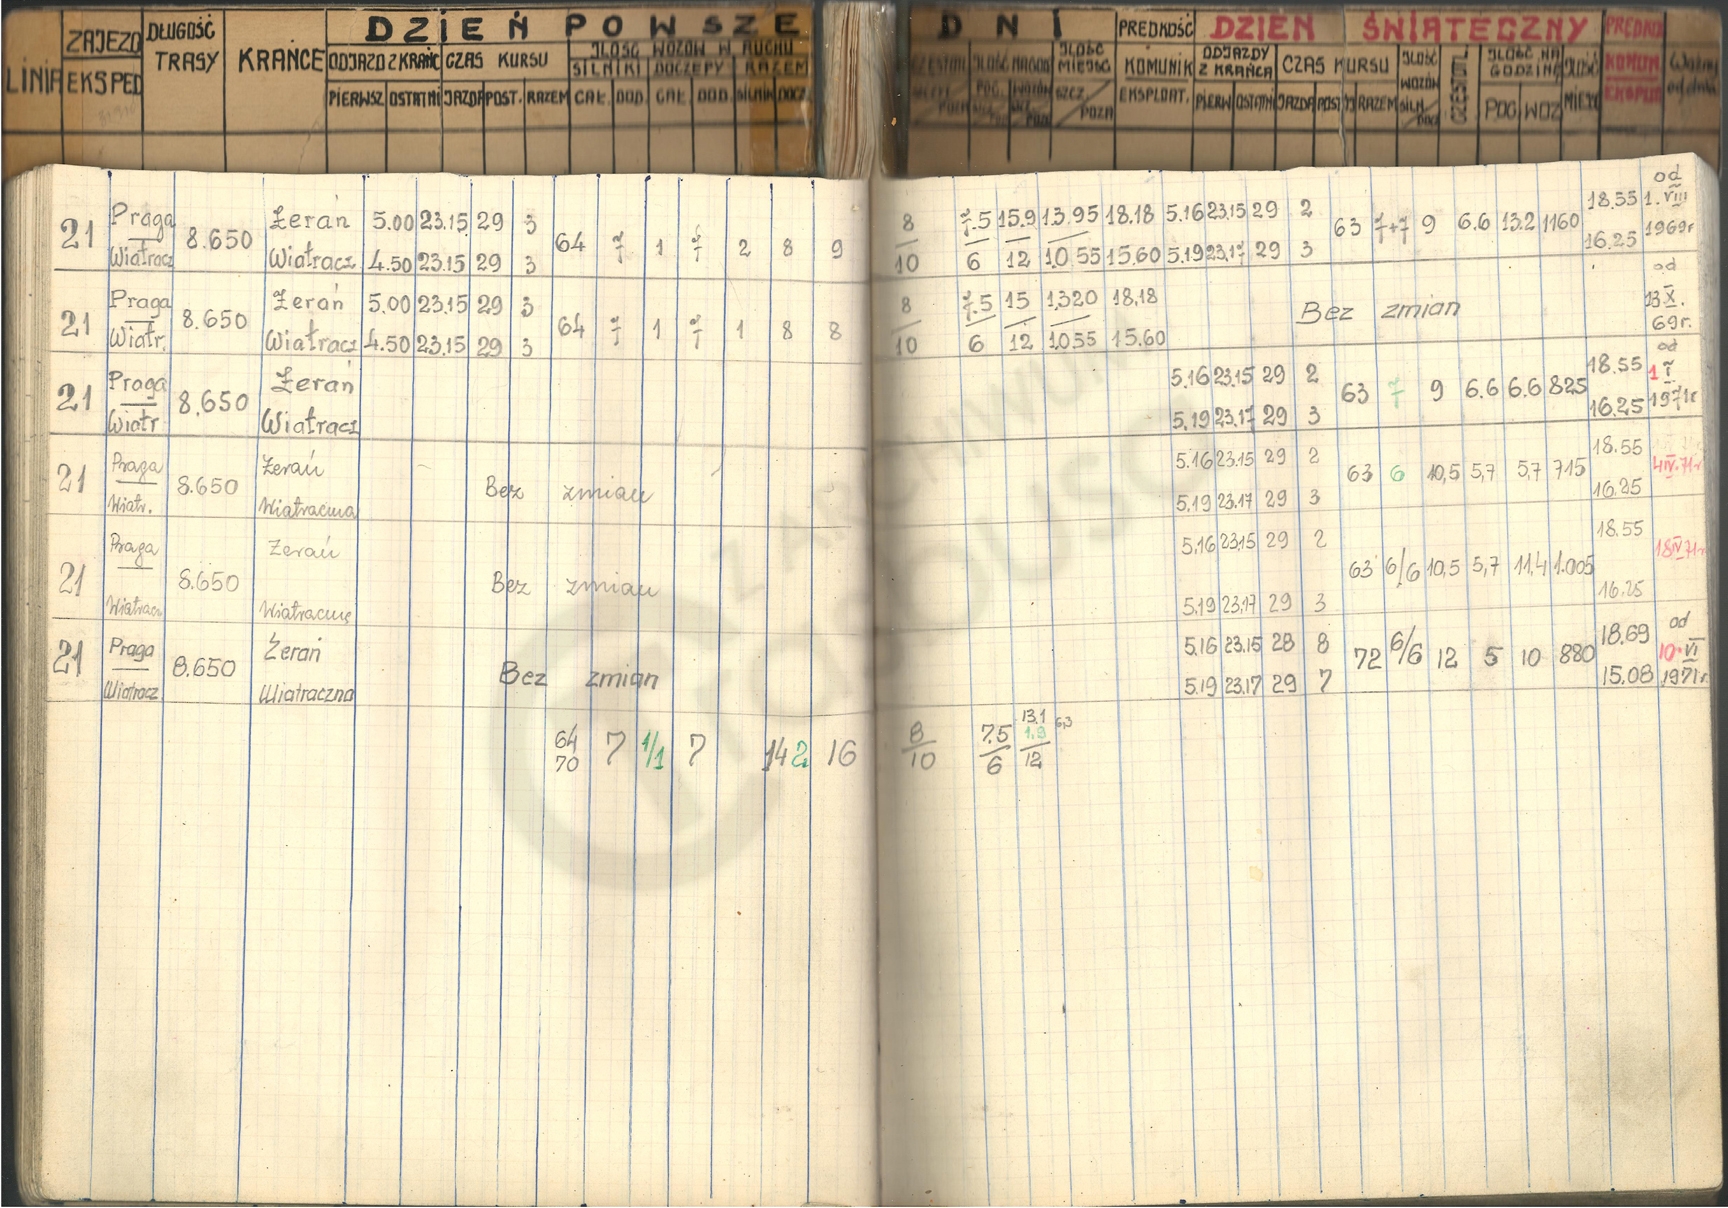 LINIA ZAJEZD EKSPED DŁUGOŚĆ TRASY KRAŃCE DZIEŃ POWSZE DNI PRĘDKOŚĆ DZIEŃ ŚWIĄTECZNY
ODJAZD Z KRAŃC CZAS KURSU ILOŚĆ WOZÓW W RUCHU KOMUNIK EKSPLOAT. ODJAZDY Z KRAŃCA CZAS KURSU ILOŚĆ WOZÓW ILOŚĆ NA GODZINĘ
SILNIKI DOCZEPY RAZEM
PIERWSZ OSTATNI JAZDA POST. RAZEM CAŁ. DOD. CAŁ. DOD. SILNIK DOCZ. PIERW OSTATNI JAZDA POST RAZEM POG. WOZ
21 Praga Wiatracz 8.650 Żerań 5.00 23.15 29 3 64 7 1 7 2 8 9 8/10 7.5/6 15.9/12 13.95/10.55 18.18 5.16 23.15 29 2 63 7+7 9 6.6 13.2 1160 18.55 od 1.VIII
Wiatracz 4.50 23.15 29 3 15.60 5.19 23.17 29 3 16.25 1969r
21 Praga Wiatr. 8.650 Żerań 5.00 23.15 29 3 64 7 1 7 1 8 8 8/10 7.5/6 15/12 1320/1055 18.18 Bez zmian od 13X.
Wiatracz 4.50 23.15 29 3 15.60 69r.
21 Praga Wiatr 8.650 Żerań 5.16 23.15 29 2 63 7 9 6.6 6.6 825 18.55 od 1 I
Wiatracz 5.19 23.17 29 3 16.25 1971r
21 Praga Wiatr. 8.650 Żerań Bez zmian 5.16 23.15 29 2 63 6 10,5 5,7 5,7 715 18.55 4IV.71r
Wiatraczna 5.19 23.17 29 3 16.25
21 Praga 8.650 Żerań Bez zmian 5.16 23.15 29 2 63 6/6 10,5 5,7 11,4 1.005 18.55 18IV71r
5.19 23.17 29 3 16.25
21 Praga Wiatracz 8.650 Żerań Bez zmian 5.16 23.15 28 8 72 6/6 12 5 10 880 18.69 od 10.VI
Wiatraczna 5.19 23.17 29 7 15.08 1971r
64 7 1/1 7 14 2 16 8/10 7.5/6 13.1 1.9 6,3
70 12